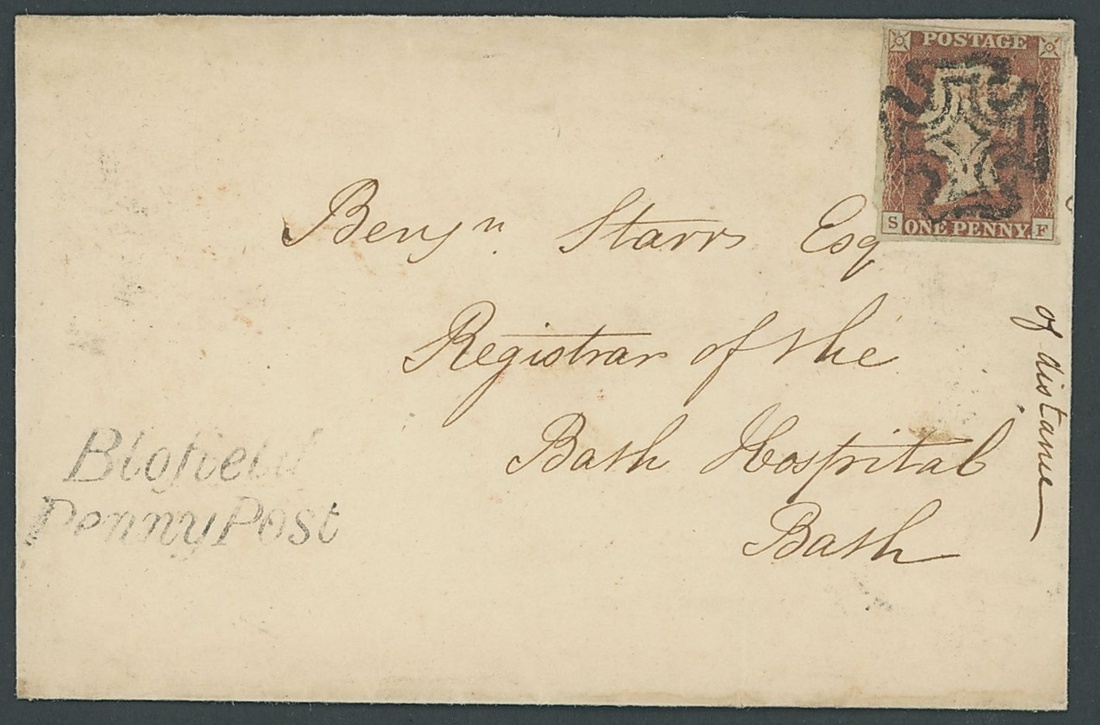 POSTAGE
S ONE PENNY F
Benjn Starrs Esq
Registrar of the
Bath Hospital
Bath
of distance
Blofield
Penny Post